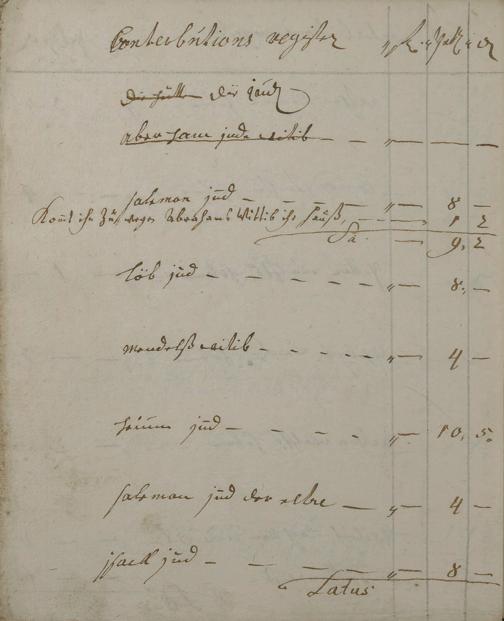 Conterbutions register
der Jud
abraham jud wittib — " — —
salomon jud — " — 8 —
Komt ihr zu wegen Abrahams Wittib ihr hauß, — 1 2
Sa. — 9. 2
löb jud — " — 8. —
mendelß wittib — " — 4 —
jud — " — 10. 5.
salemon jud der elte — " — 4 —
jsack jud — " — 8 —
Latus